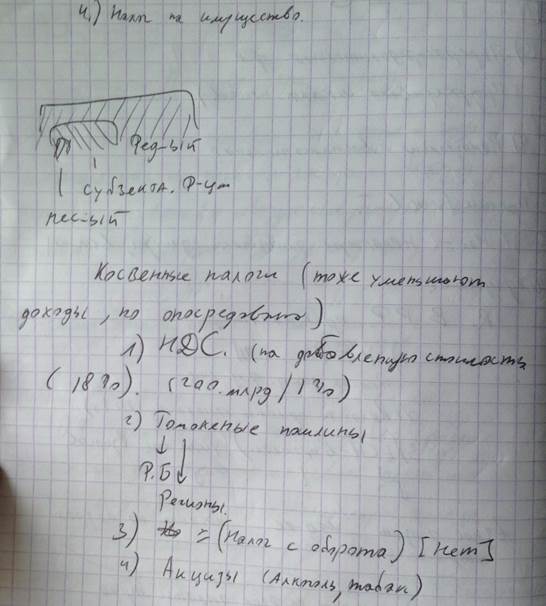 4.) Налог на имущество.
Фед-ый
субъекта. Ф-ции
мес-ый
Косвенные налоги (тоже уменьшают
доходы, но опосредовано)
1) НДС. (на добавленную стоимость
(18%). (200 млрд/1%)
2) Таможеные пошлины
Р.Б
Регионы.
3) = (Налог с оборота) [нет]
4) Акцизы (Алкоголь, табак)